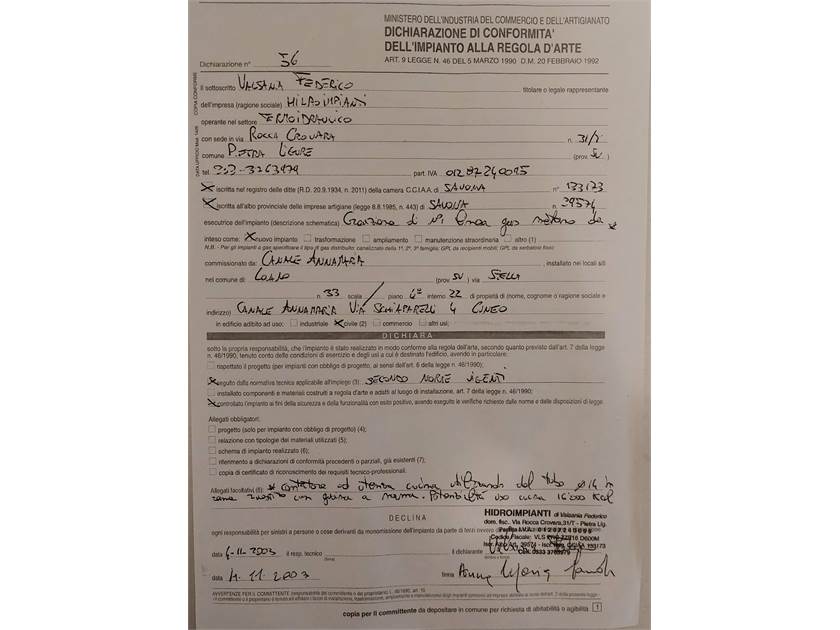 MINISTERO DELL'INDUSTRIA DEL COMMERCIO E DELL'ARTIGIANATO
DICHIARAZIONE DI CONFORMITA'
DELL'IMPIANTO ALLA REGOLA D'ARTE
ART. 9 LEGGE N. 46 DEL 5 MARZO 1990 D.M. 20 FEBBRAIO 1992
Dichiarazione n° 56
Il sottoscritto FEDERICO titolare o legale rappresentante
dell'impresa (ragione sociale)
operante nel settore TERMOIDRAULICO
con sede in via ROCCA CROVARA n. 31/T
comune PIETRA LIGURE (prov. SV)
tel. part. IVA 01287240095
iscritta nel registro delle ditte (R.D. 20.9.1934, n. 2011) della camera C.C.I.A.A. di SAVONA n° 133173
iscritta all'albo provinciale delle imprese artigiane (legge 8.8.1985, n. 443) di SAVONA n. 39574
esecutrice dell'impianto (descrizione schematica) di N°1 linea gas metano da *
inteso come: X nuovo impianto trasformazione ampliamento manutenzione straordinaria altro (1)
N.B. - Per gli impianti a gas specificare il tipo di gas distribuito: canalizzato della 1ª, 2ª, 3ª famiglia; GPL da recipienti mobili; GPL da serbatoio fisso
commissionato da: CANALE ANNAMARIA , installato nei locali siti
nel comune di: LOANO (prov. SV) via STELLA
n. 33 scala / piano 4° interno 22 di proprietà di (nome, cognome o ragione sociale e
indirizzo) CANALE ANNAMARIA VIA SCHIAPARELLI 4 CUNEO
in edificio adibito ad uso: industriale X civile (2) commercio altri usi;
DICHIARA
sotto la propria responsabilità, che l'impianto è stato realizzato in modo conforme alla regola dell'arte, secondo quanto previsto dall'art. 7 della legge
n. 46/1990, tenuto conto delle condizioni di esercizio e degli usi a cui è destinato l'edificio, avendo in particolare:
rispettato il progetto (per impianti con obbligo di progetto, ai sensi dell'art. 6 della legge n. 46/1990);
X seguito dalla normativa tecnica applicabile all'impiego (3): SECONDO NORME VIGENTI
installato componenti e materiali costruiti a regola d'arte e adatti al luogo di installazione, art. 7 della legge n. 46/1990;
X controllato l'impianto ai fini della sicurezza e della funzionalità con esito positivo, avendo eseguito le verifiche richieste dalle norme e delle disposizioni di legge.
Allegati obbligatori:
progetto (solo per impianto con obbligo di progetto) (4);
relazione con tipologie dei materiali utilizzati (5);
schema di impianto realizzato (6);
riferimento a dichiarazioni di conformità precedenti o parziali, già esistenti (7);
copia di certificato di riconoscimento dei requisiti tecnico-professionali.
Allegati facoltativi (8): * contatore ad utenza cucina utilizzando del tubo ø 14 in
rame con guaina a norma. Potenzialità uso cucina 16000 Kcal
DECLINA
ogni responsabilità per sinistri a persone o cose derivanti da manomissione dell'impianto da parte di terzi ovvero
HIDROIMPIANTI di Valsania Federico
dom. fisc. Via Rocca Crovara,31/T - Pietra Lig.
Partita I.V.A. 01287240095
data 4-11-2003 il resp. tecnico (firma) il dichiarante
data 4.11.2003 firma
AVVERTENZE PER IL COMMITTENTE
copia per il committente da depositare in comune per richiesta di abitabilità o agibilità 1